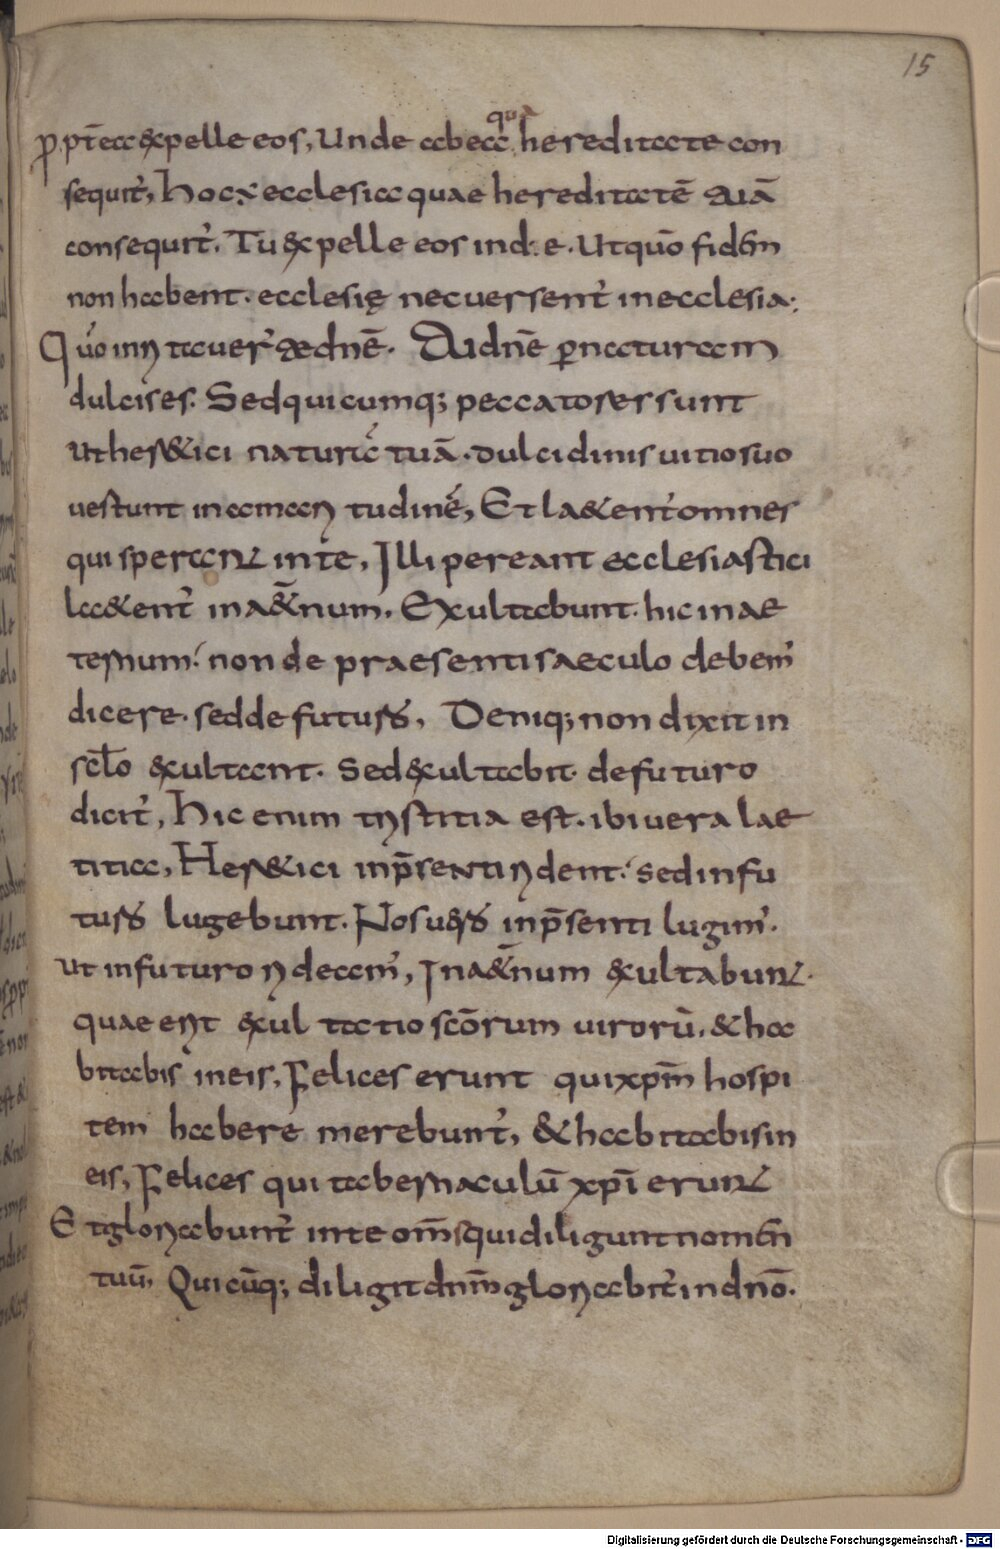 15
quȩ
ꝓpt̄ea &xpelle eos, Unde ab ea hereditate con
sequit̾, Hoc ÷ ecclesia quae hereditatē suā
consequit̾. Tu &xpelle eos inde. Ut quō fidem
non habent. ecclesię nec uersent̾ in ecclesia;
Quō inritauer̾ te dn̄e. Tu dn̄e ꝑ naturam
dulcis es. Sed quicumq; peccatores sunt
ut her&ici naturā tuā. dulcidinis uitio suo
uertunt in amaritudinē, Et la&ent̾ omnes
qui sperant in te, Illi pereant ecclesiastici
la&ent̾ in a&̄num. Exultabunt. hic in ae
ternum. non de praesenti saeculo debem̾
dicere. sed de futuro, Deniq; non dixit in
sc̄lo &xultant. Sed &xultabit. de futuro
dicit̾, Hic enim tristitia est. ibi uera lae
titia, Her&ici in p̄senti rident. sed in fu
turo lugebunt. Nos uero in p̄senti lugim̾.
ut in futuro rideam̾, In a&̄num &xultabunt.
quae erit &xultatio scōrum uirorū. & ha
bitabis in eis, Felices erunt qui xp̄m hospi
tem habere merebunt̾, & habitabis in
eis, Felices qui tabernaculū xp̄i erunt
Et gloriabunt̾ in te om̄s qui diligunt nomen
tuū, Quicūq; diligit dn̄m gloriabit̾ in dn̄o.
Digitalisierung gefördert durch die Deutsche Forschungsgemeinschaft - DFG